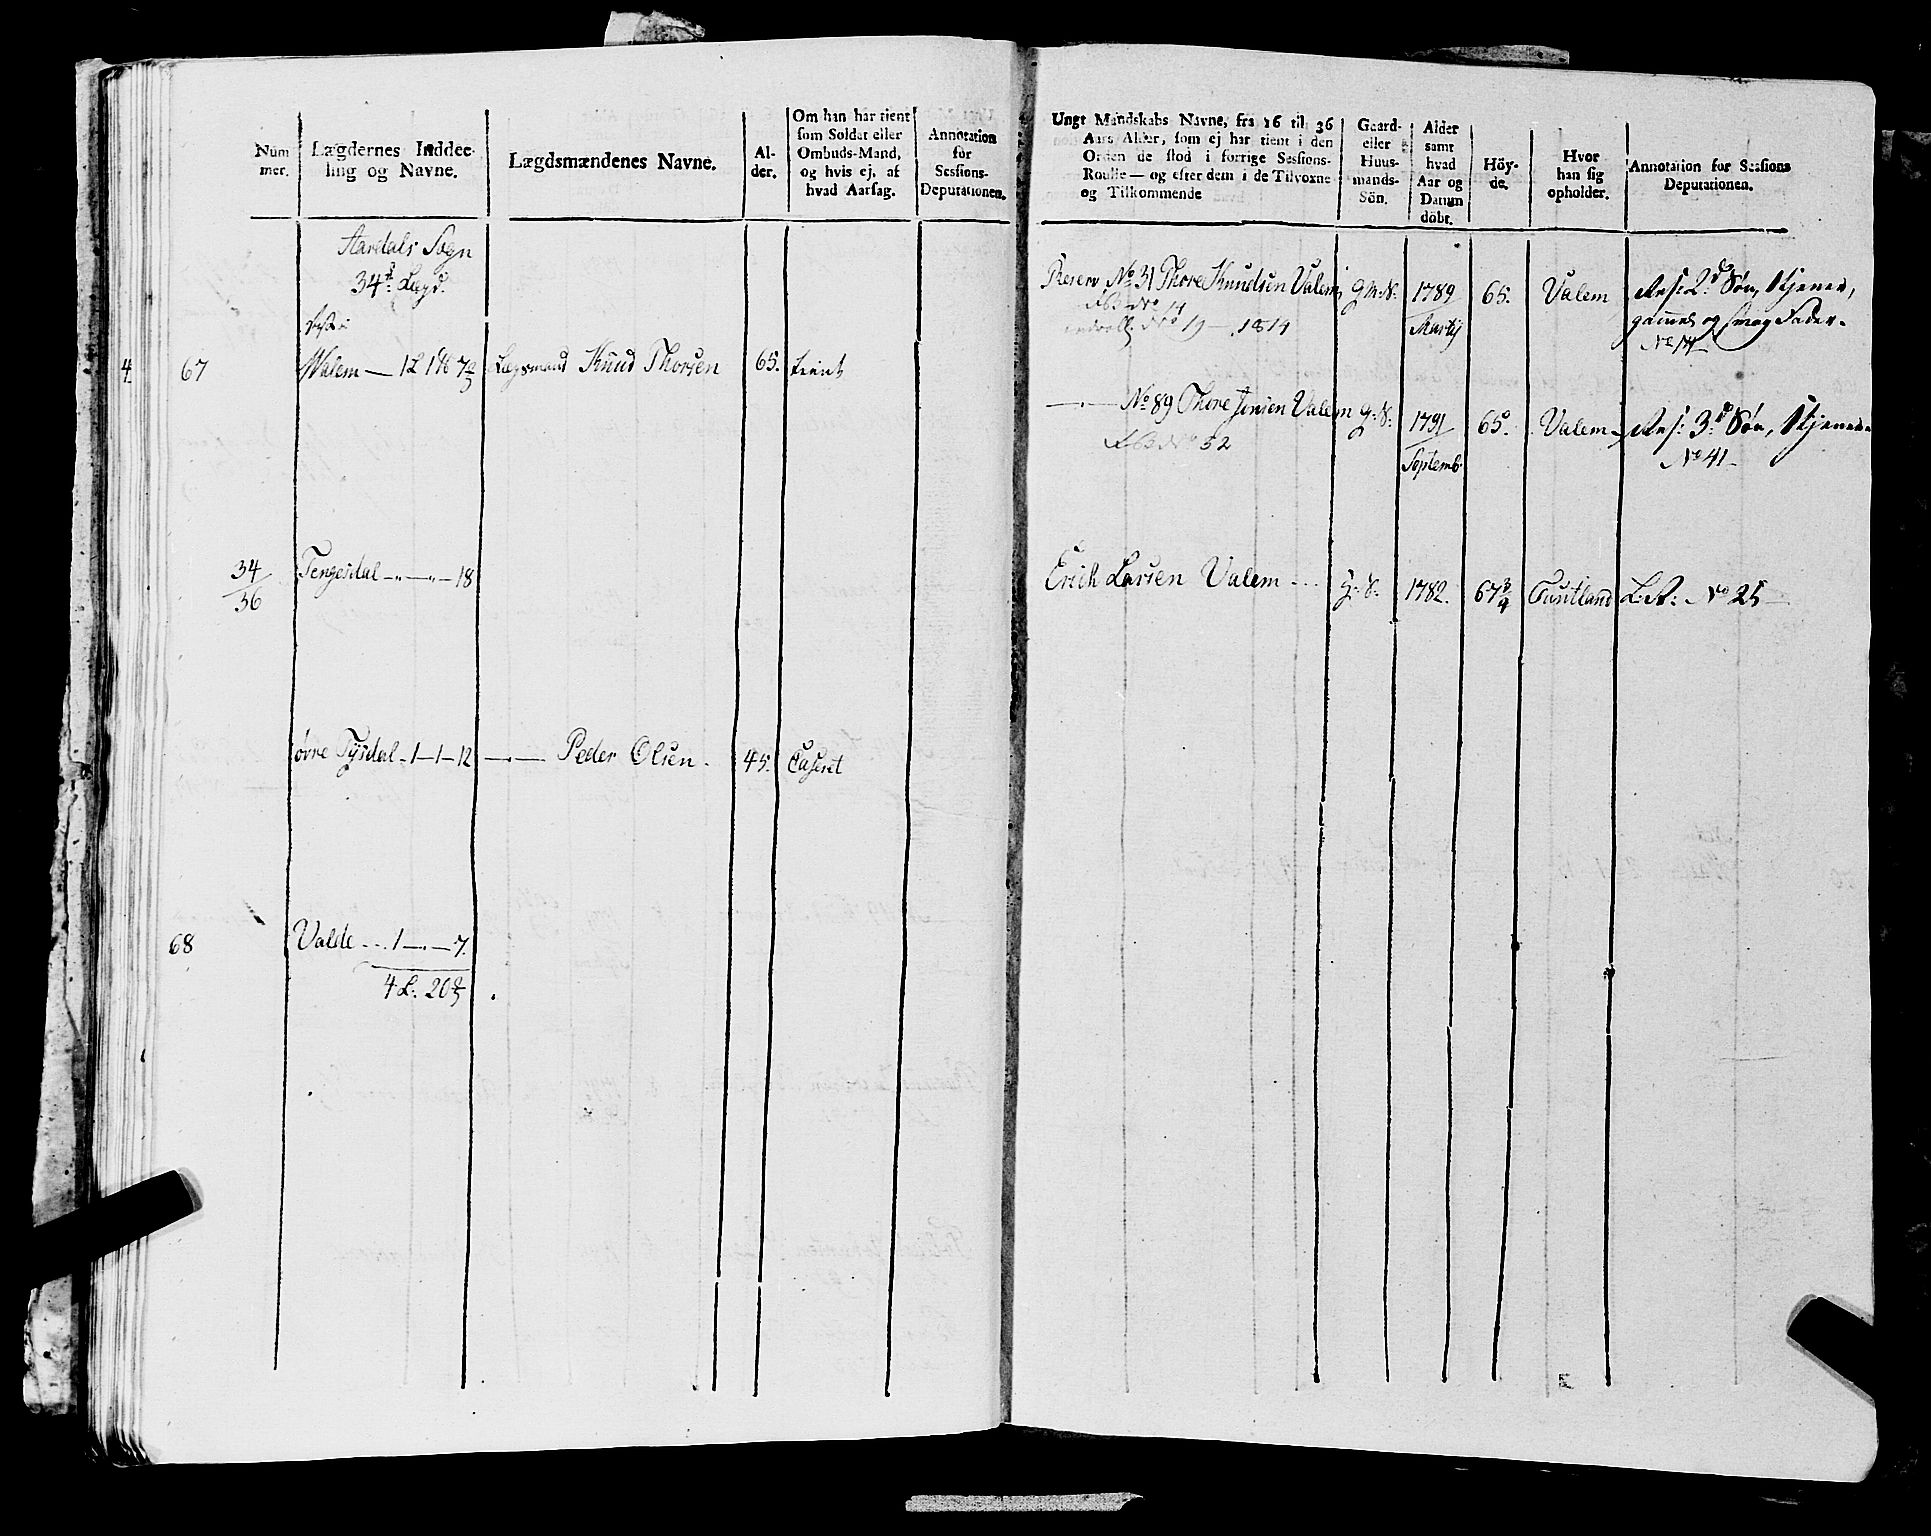 Num
mer.
Lægdernes Inddee-
ling og Navne.
Lægdsmændenes Navne.
Al-
der.
Om han har tient
som Soldat eller
Ombuds-Mand,
og hvis ej, af
hvad Aarsag.
Annotation
for
Sessions-
Deputationen.
Aardals Sogn
34te Lægd.
4. 67 Walem — 1L 1M 7 2/3 Lægsmand Knud Thorsen 65. tient
34/36 Tengesdal — 18
övre Tysdal - 1-1-12 Peder Olsen - 45. Caseret
68 Valde - - 1 — 7.
4 L. 20 2/3
Ungt Mandskabs Navne, fra 16 til 36
Aars Alder, som ej har tient i den
Orden de stod i forrige Sessions-
Roulle — og efter dem i de Tilvoxne
og Tilkommende
Gaard-
eller
Huus-
mands-
Sön.
Alder
samt
hvad
Aar og
Datum
döbt.
Höy-
de.
Hvor
han sig
opholder.
Annotation for Sessions
Deputationen.
Reserv No 31 Thore Knudsen Valem G.M.S. 1789 65. Valem Res: 2d Søn, tjener,
No 14 Martij gammel og svag Fader.
No 19 - 1814 No 14
No 89 Thore Jonsen Valem G.S. 1791 65. Valem Res: 3d Søn, tjenende
No 52 Septemb. No 41
Erich Larsen Valem - - - G.S. 1782. 67 3/4 L.R: No 25